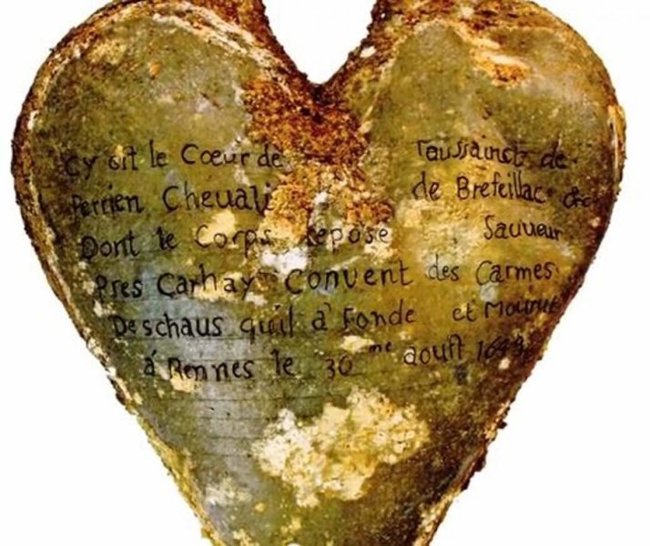 Cy Git le Cœur de Toussainct de
Perrien Cheuali de Brefeillac &c
Dont le Corps Repose Sauueur
Pres Carhay Convent des Carmes
Deschaus quil a Fondé et Mourut
á Rennes le 30me aouft